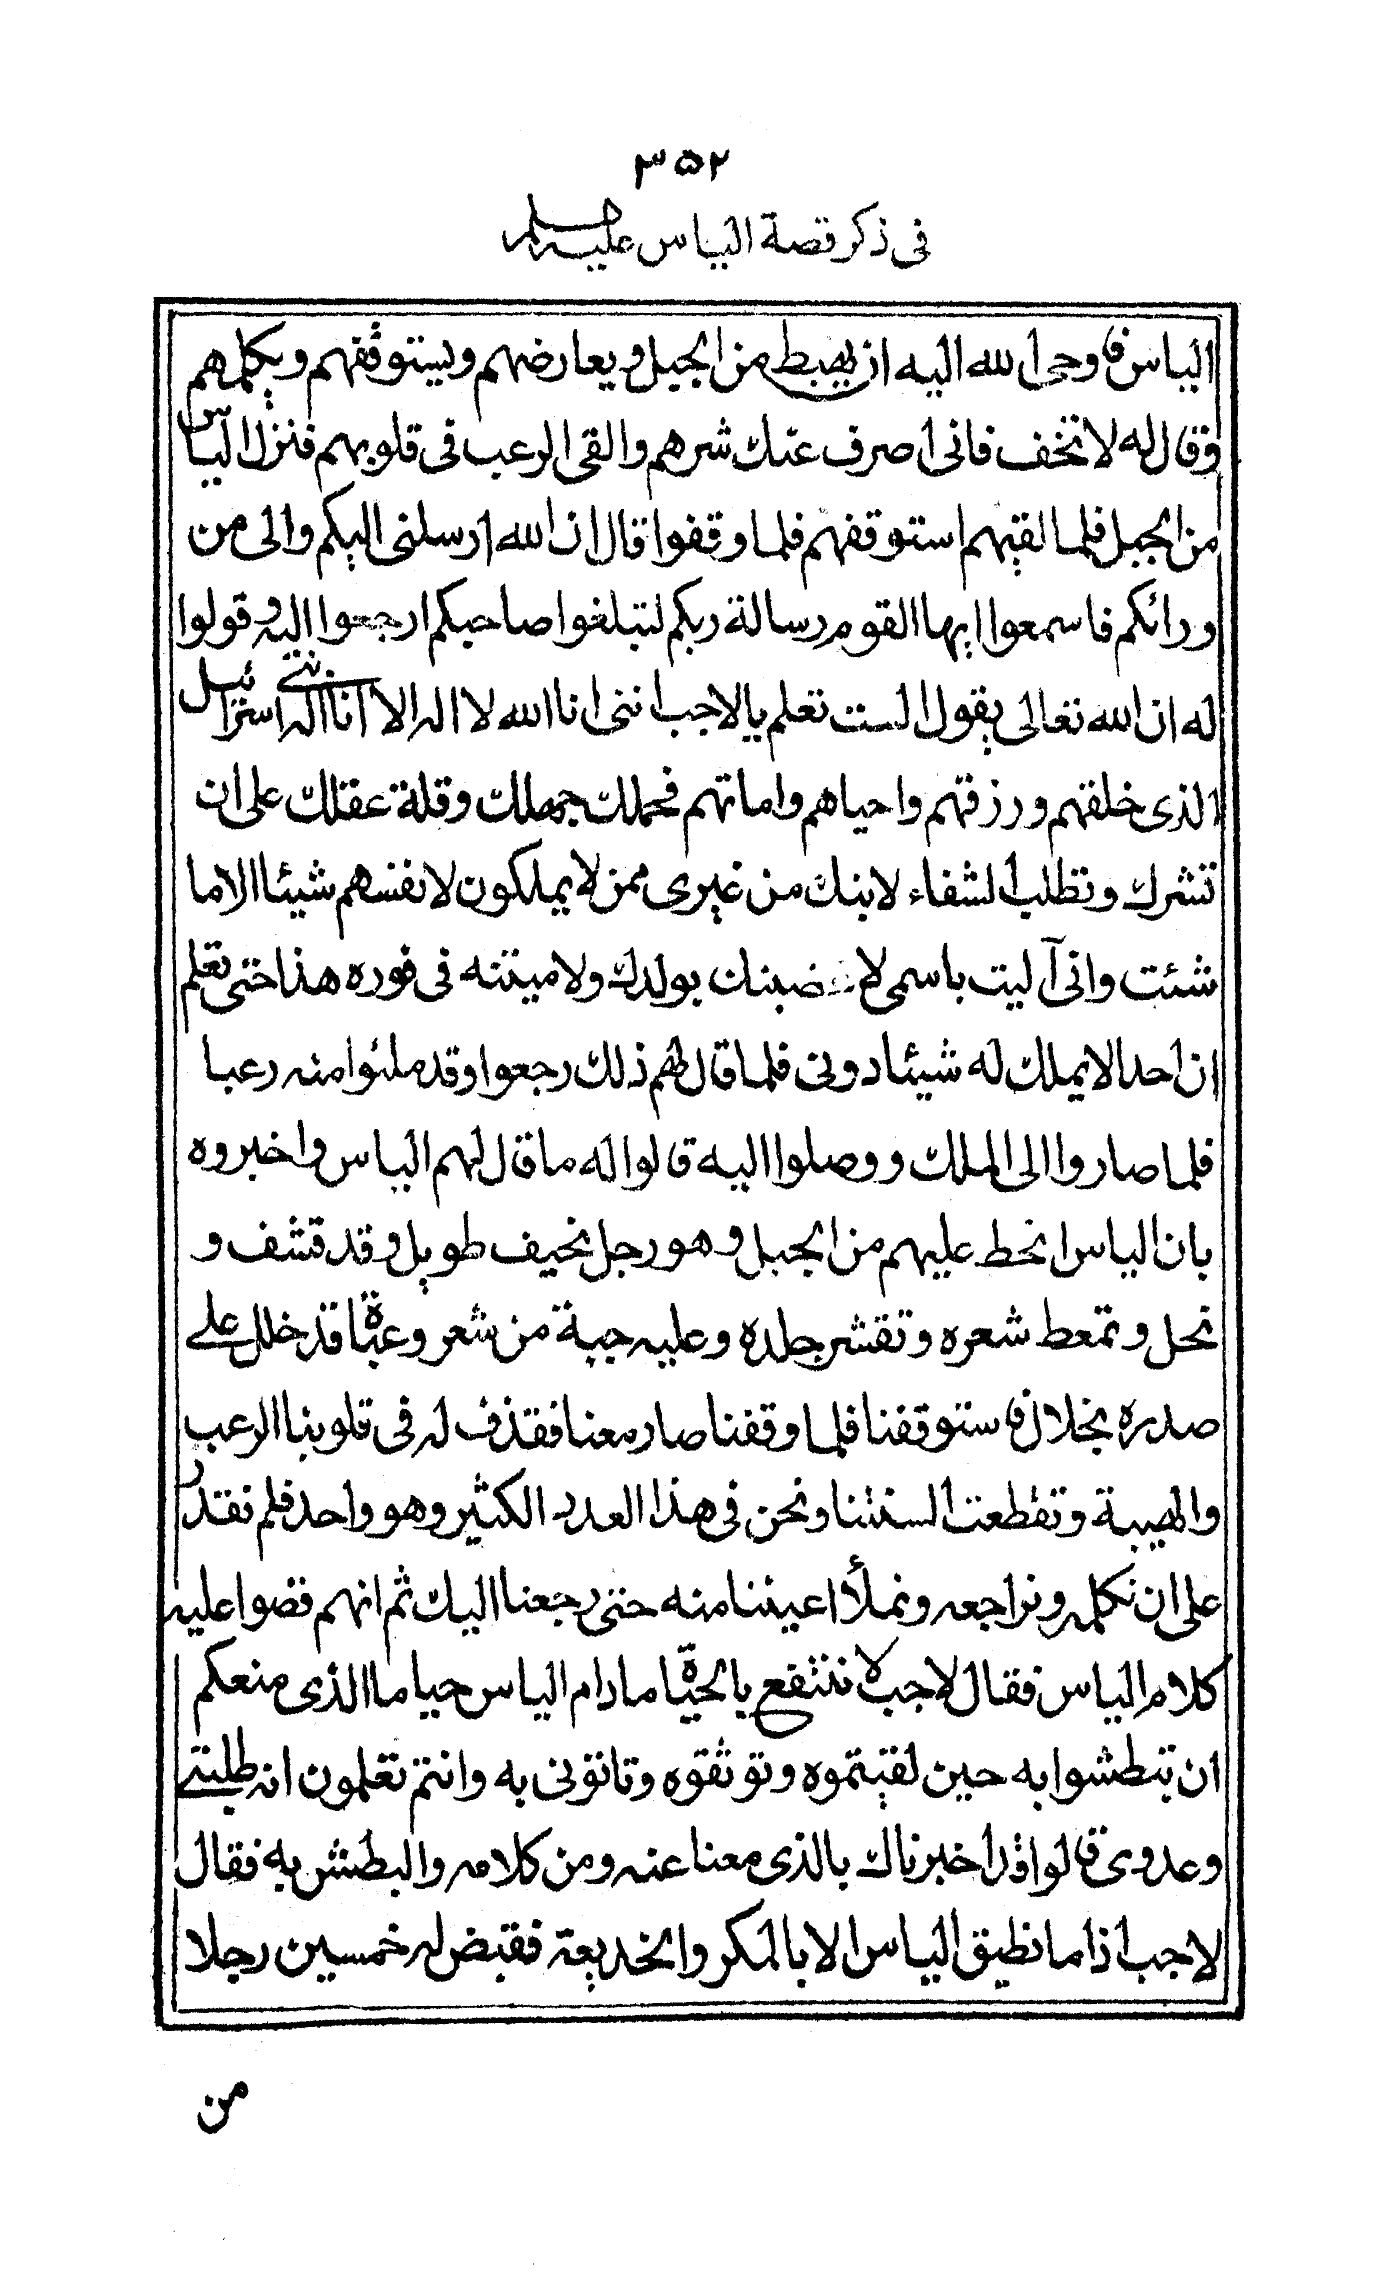 ٣٥٢
فى ذكر قصة الياس عليه السلم
الياس فاوحى الله اليه ان يهبط من الجبل ويعارضهم ويستوقفهم ويكلمهم
وقال له لا تخف فانى اصرف عنك شرهم والقى الرعب فى قلوبهم فنزل الياس
من الجبل فلما لقيهم استوقفهم فلما وقفوا قال ان الله ارسلنى اليكم والى من
ورائكم فاسمعوا ايها القوم رسالة ربكم لتبلغوا صاحبكم ارجعوا اليه وقولوا
له ان الله تعالى يقول الست تعلم يا لاجب اننى انا الله لا اله الا انا اله بنى اسرائيل
الذى خلقهم ورزقهم واحياهم واماتهم فحملك جهلك وقلة عقلك على ان
تشرك وتطلب الشفاء لابنك من غيرى ممن لا يملكون لانفسهم شيئا الا ما
شئت وانى آليت باسمى لاغضبنك بولدك ولاميتنه فى فوره هذا حتى تعلم
ان احدا لا يملك له شيئا دونى فلما قال لهم ذلك رجعوا وقد ملئوا منه رعبا
فلما صاروا الى الملك ووصلوا اليه قالوا له ما قال لهم الياس واخبروه
بان الياس انحط عليهم من الجبل وهو رجل نحيف طويل وقد قشف و
نحل وتمعط شعره وتقشر جلده وعليه جبة من شعر وعباة قد خلل على
صدره بخلال فاستوقفنا فلما وقفنا صار معنا فقذف له فى قلوبنا الرعب
والهيبة وتقطعت السنتنا ونحن فى هذا العدد الكثير وهو واحد فلم نقدر
على ان نكلمه ونراجعه ونملأ اعيننا منه حتى رجعنا اليك ثم انهم قصوا عليه
كلام الياس فقال لاجب لا ننتفع بالحياة ما دام الياس حيا ما الذى منعكم
ان تبطشوا به حين لقيتموه وتوثقوه وتاتونى به وانتم تعلمون انه طلبتى
وعدوى قالوا قد اخبرناك بالذى معنا عنه ومن كلامه والبطش به فقال
لاجب اذا ما نطيق الياس الا بالمكر والخديعة فقبض له خمسين رجلا
من